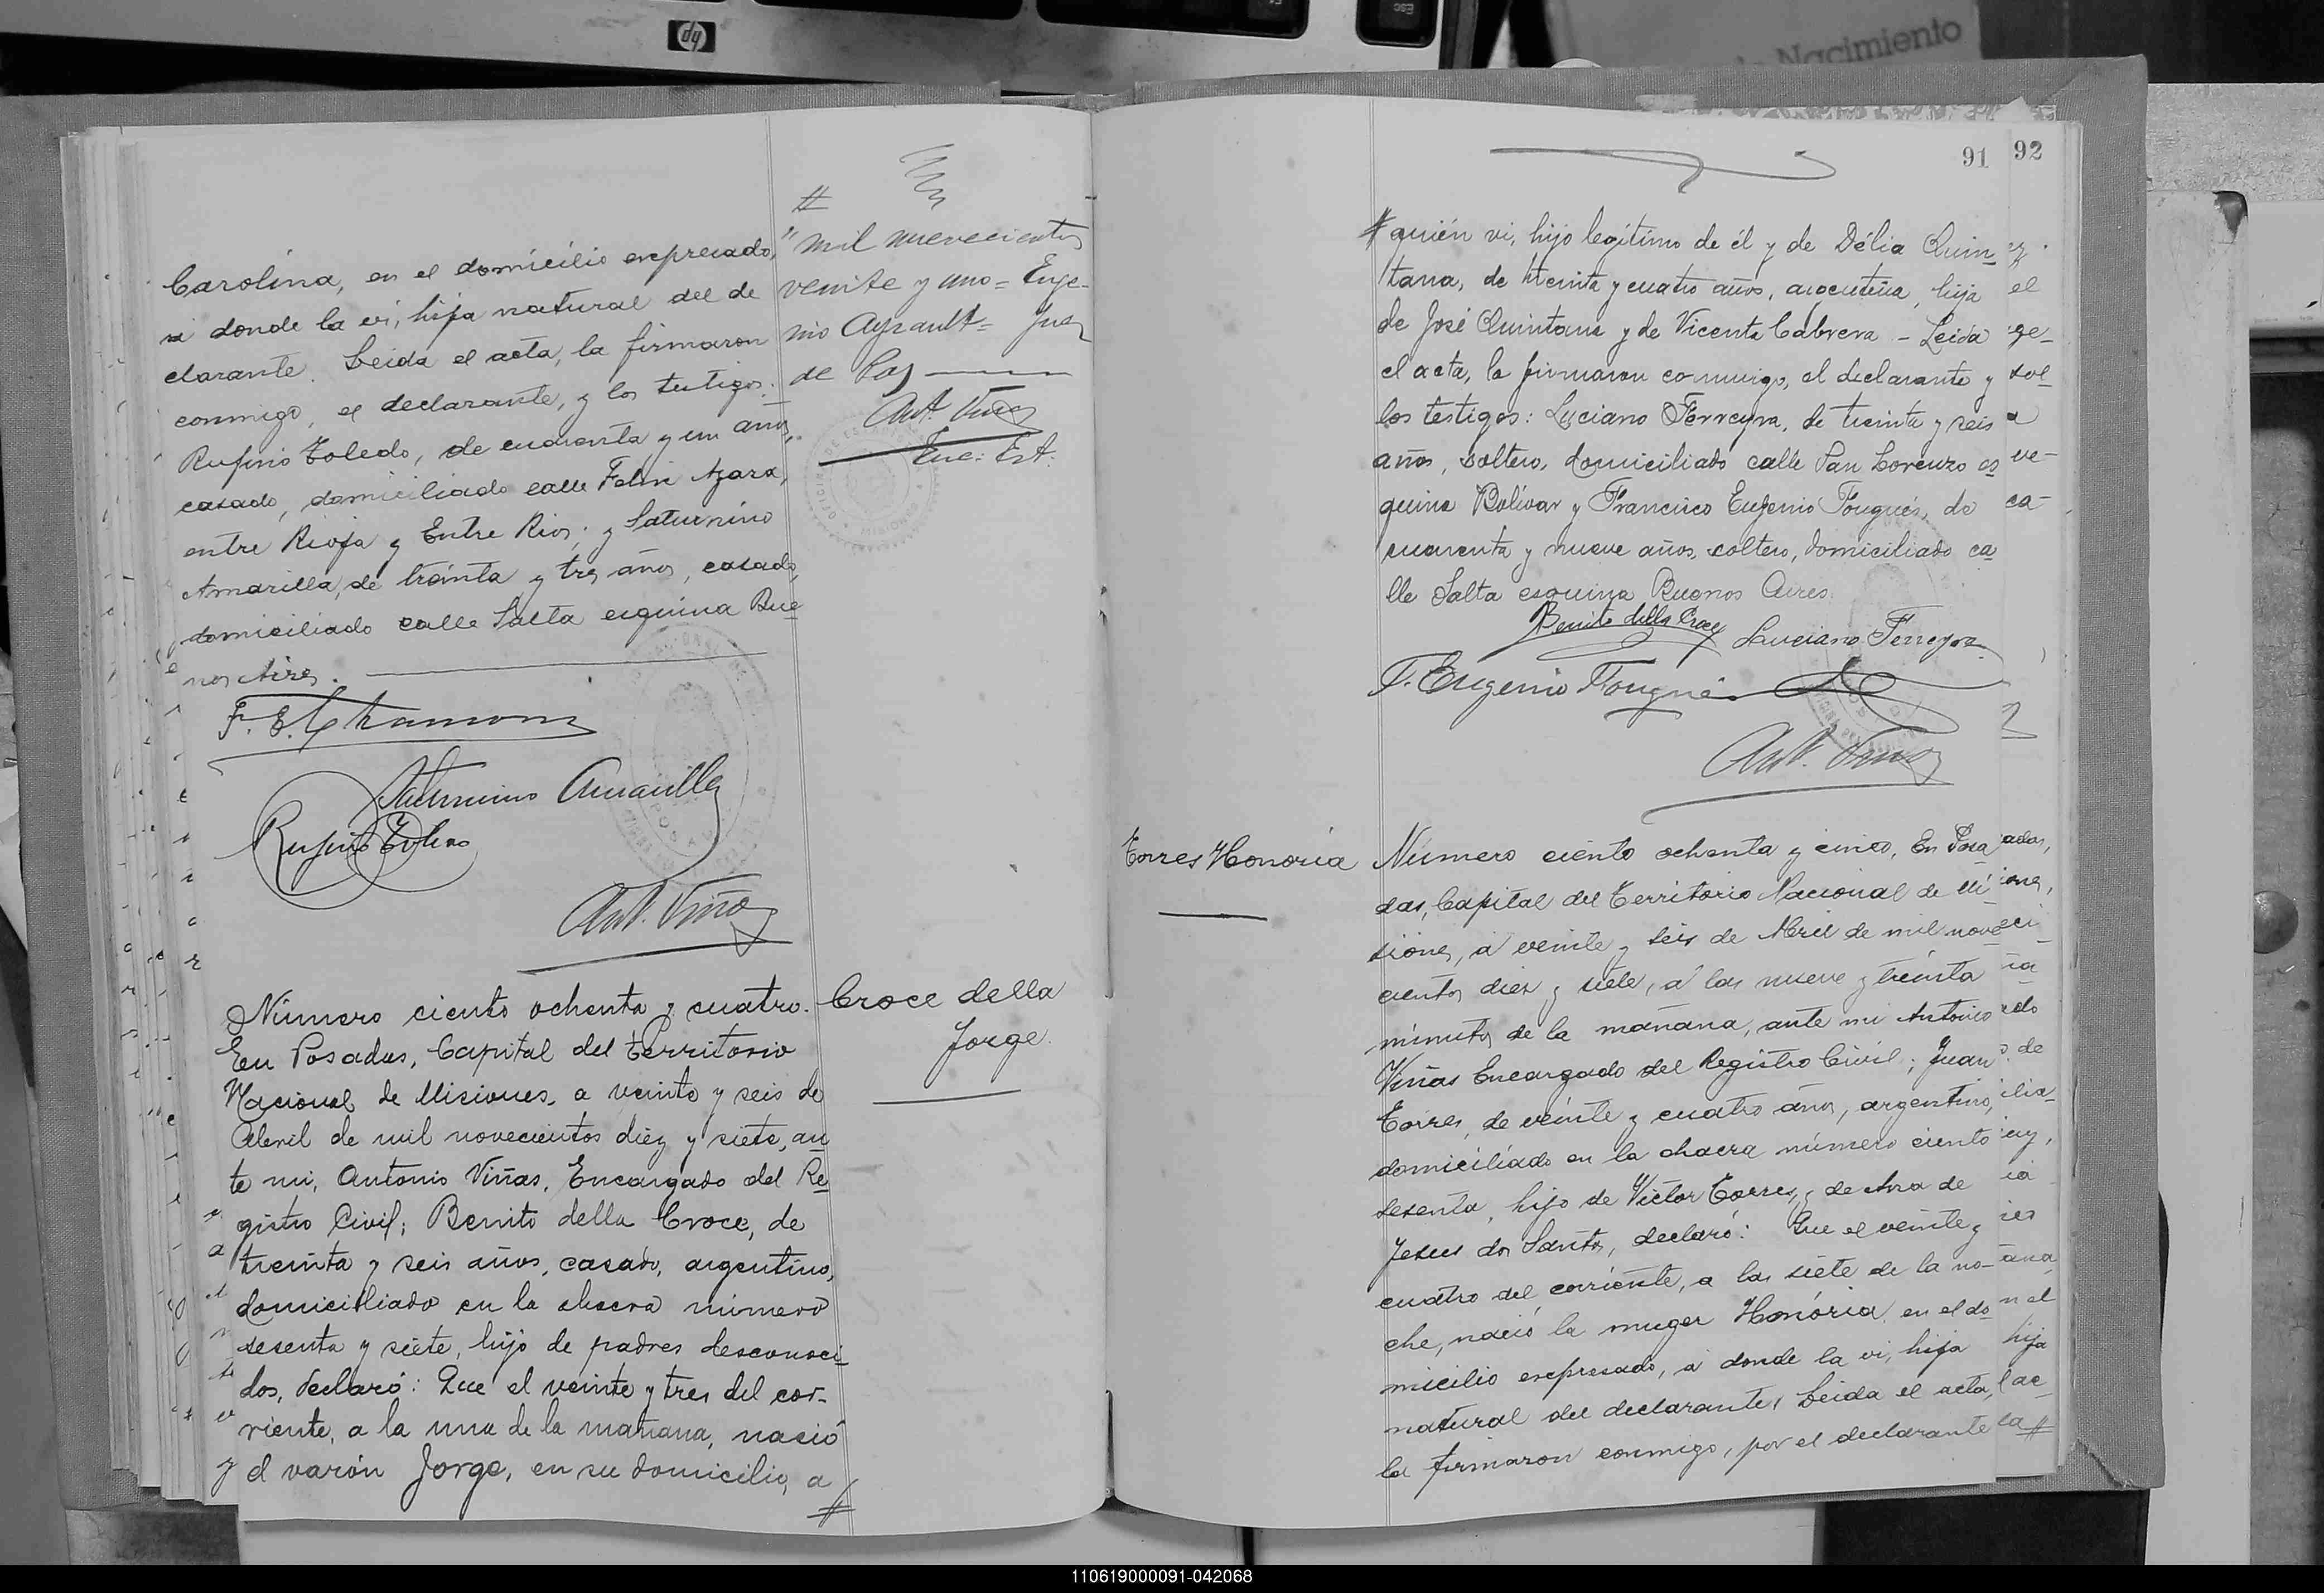 hp
ESC
Nacimiento
Carolina, en el domicilio expresado,
a donde la vi, hija natural del de
clarante. Leida el acta, la firmaron
conmigo, el declarante, y los testigos:
Rufino Toledo, de cuarenta y un años,
casado, domiciliado calle Felix Azara,
entre Rioja y Entre Rios; y Saturnino
Amarilla, de treinta y tres años, casado,
domiciliado calle Salta esquina Bue
nos Aires.
Saturnino Amarilla
Rufino Toledo
Ant. Viñas
#
" mil nuevecientos
veinte y uno = Euge-
nio Ayrault = Juez
de Paz
Ant. Viñas
Enc: Est.
Número ciento ochenta y cuatro.
En Posadas, Capital del Territorio
Nacional de Misiones, a veinte y seis de
Abril de mil novecientos diez y siete, an
te mi, Antonio Viñas, Encargado del Re
gistro Civil; Benito della Croce, de
treinta y seis años, casado, argentino,
domiciliado en la chacra número
sesenta y siete, hijo de padres desconoci
dos, declaró: Que el veinte y tres del cor-
riente, a la una de la mañana, nació
el varón Jorge, en su domicilio, a
#
Croce della
Jorge.
91
92
# quién vi, hijo legítimo de él y de Délia Quin
tana, de treinta y cuatro años, argentina, hija
de José Quintana y de Vicenta Cabrera - Leida
el acta, la firmaron conmigo, el declarante y
los testigos: Luciano Ferreyra, de treinta y seis
años, soltero, domiciliado calle San Lorenzo es
quina Bolívar y Francisco Eugenio Fougués, de
cuarenta y nueve años, soltero, domiciliado ca
lle Salta esquina Buenos Aires
Benito della Croce
Luciano Ferreyra
F. Eugenio Fougués
Ant. Viñas
Torres Honoria
Número ciento ochenta y cinco, En Posa
das, Capital del Territorio Nacional de Mi
siones, a veinte y seis de Abril de mil nove
cientos diez y siete, a las nueve y treinta
minutos de la mañana, ante mi Antonio
Viñas Encargado del Registro Civil; Juan
Torres, de veinte y cuatro años, argentino,
domiciliado en la chacra número ciento
sesenta, hijo de Victor Torres, y de Ana de
Jesus dos Santos, declaró: Que el veinte y
cuatro del corriente, a las siete de la no-
che, nació la muger Honória, en el do
micilio expresado, a donde la vi, hija
natural del declarante, Leida el acta,
la firmaron conmigo, por el declarante
110619000091-042068